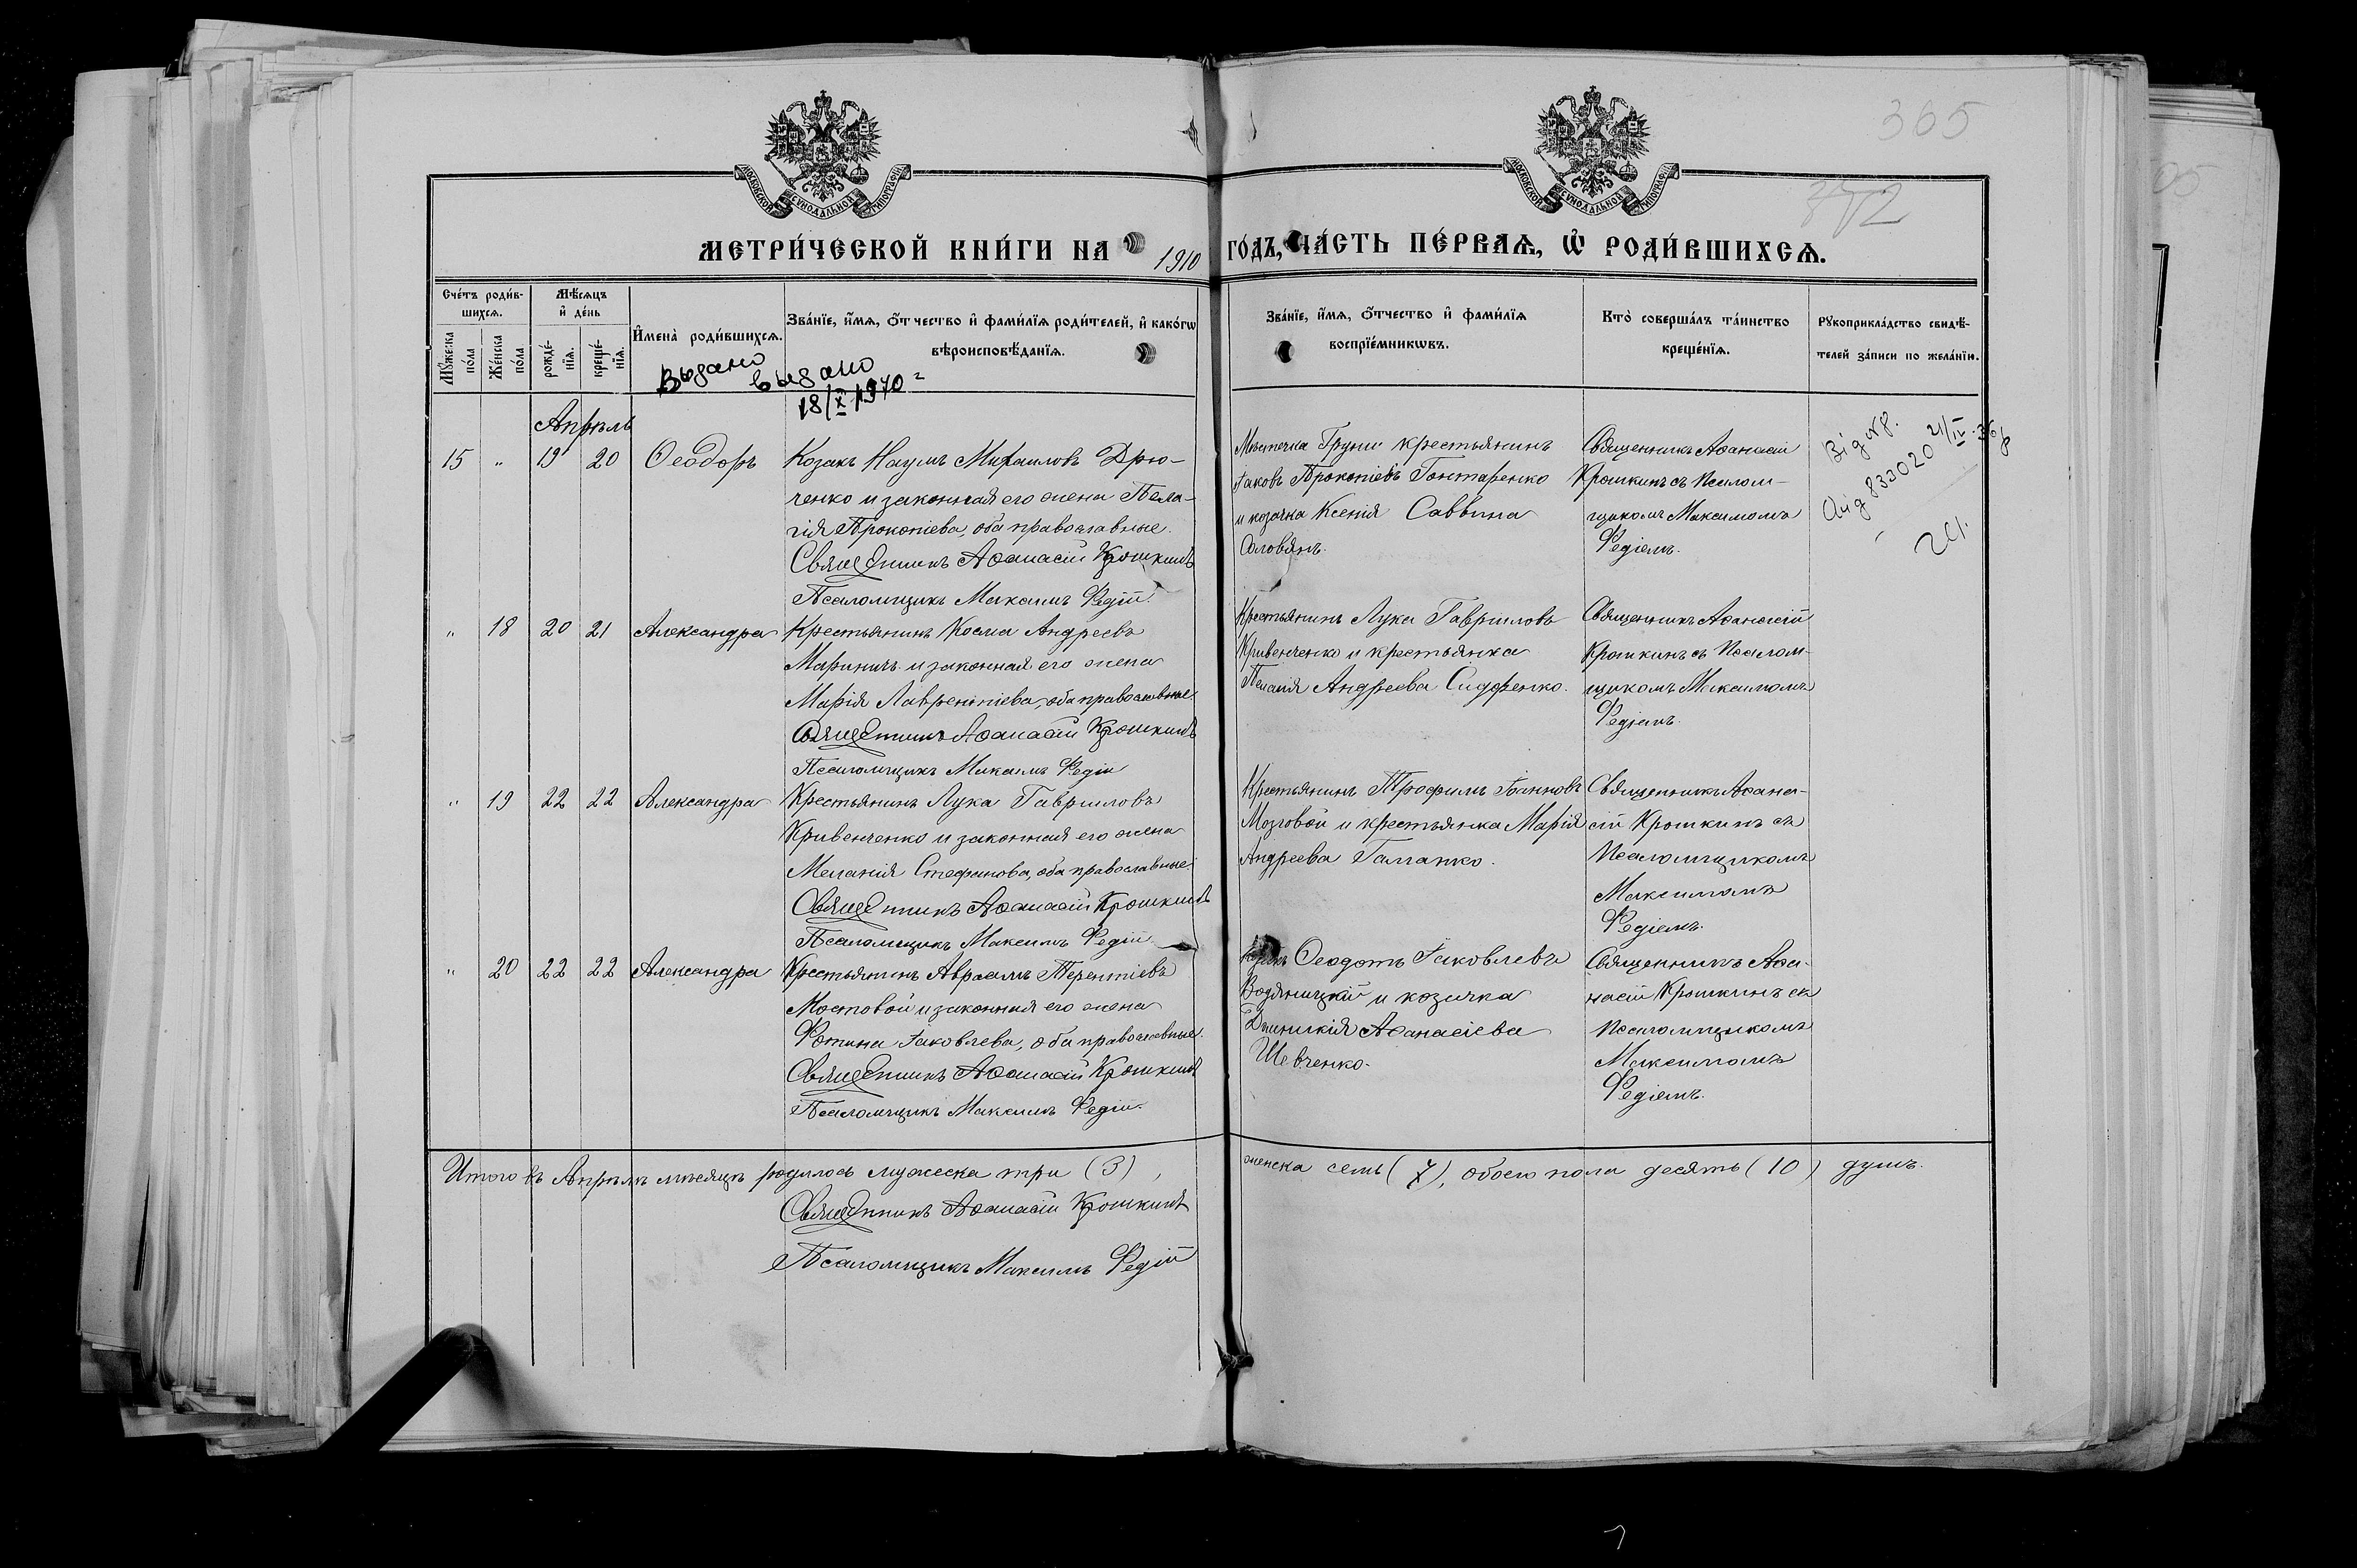 365
372
МОСКОВСКОЙ СѴНОДАЛЬНОЙ ТИПОГРАФІИ
МОСКОВСКОЙ СѴНОДАЛЬНОЙ ТИПОГРАФІИ
МЕТРИ́ЧЕСКОЙ КНИ́ГИ НА 1910 ГО́ДЪ, ЧА́СТЬ ПЕ́РВАѦ, Ѡ҆ РОДИ́ВШИХСѦ.
Сче́тъ роди́вшихсѧ.
Мꙋ́жеска по́ла
Же́нска по́ла
Мѣ́сѧцъ и҆ де́нь
рожде́нїѧ.
креще́нїѧ.
И҆мена̀ роди́вшихсѧ.
Зва́нїе, и҆́мѧ, ѻ҆́тчество и҆ фами́лїѧ роди́телей, и҆ како́гѡ
вѣроисповѣ́данїѧ.
Зва́нїе, и҆́мѧ, ѻ҆́тчество и҆ фами́лїѧ
воспрїе́мникѡвъ.
Кто̀ соверша́лъ та́инство
креще́нїѧ.
Рꙋкоприкла́дство свидѣ́-
телей за́писи по жела́нїю.
Выдано
выдано
18/X 1970 г
Апрѣль
15 " 19 20 Ѳеодоръ
Козакъ Наумъ Михаиловъ Дрю-
ченко и законная его жена Пела-
гія Прокопіева, оба православные.
Священникъ Аѳанасій Крошкинъ
Псаломщикъ Максимъ Редій.
Мѣстечка Груни крестьянинъ
Іаковъ Прокопіевъ Гонтаренко
и козачка Ксенія Саввина
Соловянъ.
Священникъ Аѳанасій
Крошкинъ съ псалом-
щикомъ Максимомъ
Редіемъ.
Від
833020 21/IV
" 18 20 21 Александра
Крестьянинъ Косма Андреевъ
Мариничъ и законная его жена
Марія Лаврентіева, оба православные.
Священникъ Аѳанасій Крошкинъ
Псаломщикъ Максимъ Редій
Крестьянинъ Лука Гавриловъ
Кривенченко и крестьянка
Пелагія Андреева Сидоренко.
Священникъ Аѳанасій
Крошкинъ съ псалом-
щикомъ Максимомъ
Редіемъ.
" 19 22 22 Александра
Крестьянинъ Лука Гавриловъ
Кривенченко и законная его жена
Меланія Стефанова, оба православные.
Священникъ Аѳанасій Крошкинъ
Псаломщикъ Максимъ Редій
Крестьянинъ Трофимъ Іоанновъ
Мозговой и крестьянка Марія
Андреева Галанко.
Священникъ Аѳана-
сій Крошкинъ съ
псаломщикомъ
Максимомъ
Редіемъ.
" 20 22 22 Александра
Крестьянинъ Авраамъ Терентіевъ
Мостовой и законная его жена
Фотина Іаковлева, оба православные.
Священникъ Аѳанасій Крошкинъ
Псаломщикъ Максимъ Редій.
Козакъ Ѳеодотъ Іаковлевъ
Водяницкій и козачка
Домникія Аѳанасіева
Шевченко.
Священникъ Аѳа-
насій Крошкинъ съ
псаломщикомъ
Максимомъ
Редіемъ.
Итого въ Апрѣлѣ мѣсяцѣ родилось мужеска три (3), женска семь (7), обоего пола десять (10) душъ.
Священникъ Аѳанасій Крошкинъ
Псаломщикъ Максимъ Редій